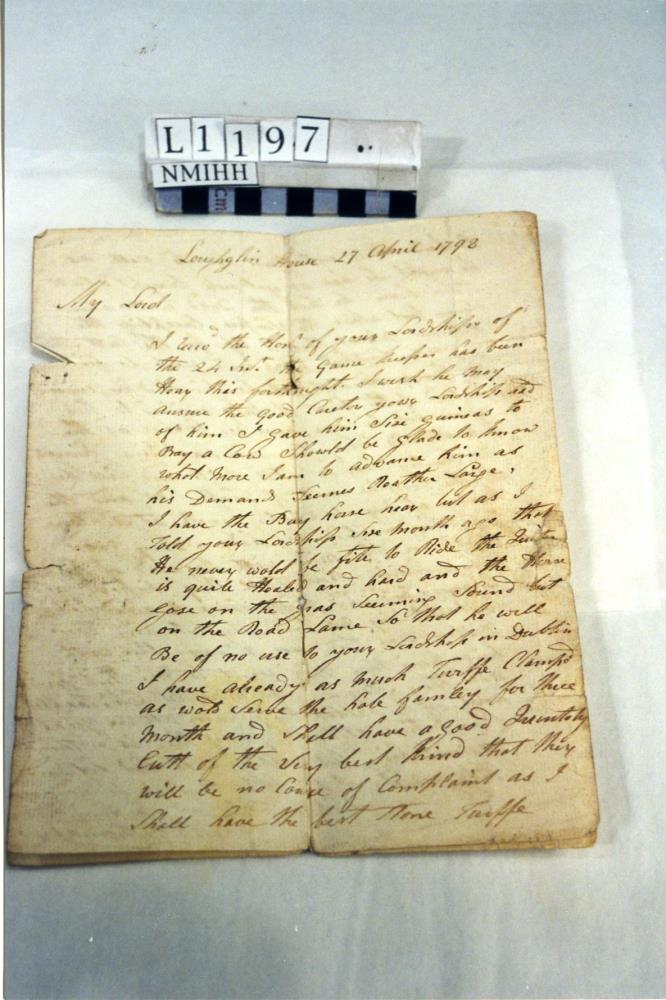 L1197
NMIHH
cm
Loughglin House 27 April 1798
My Lord
I recd the Honr of your Lordships of
the 24 Inst the Game keeper has been
Hear this fortnight I wish he may
answer the good Carctor your Lordship had
of him I gave him Six guineas to
Bay a Cow Should be glade to know
what more I am to advame him as
his Demands Seemes Reather Large,
I have the Bay horse hear but as I
Told your Lordship Six Month ago that
He never wold be fite to Ride the
is quite Healed and hard and the Horse
gose on the gras Seeming Sound but
on the Road Lame So that he will
Be of no use to your Lordship in Dublin
I have already as much Turffe Clampd
as wold Serve the hole famley for three
Month and Shall have a good Quantety
Cutt of the very best kind that they
will be no Cause of Complaint as I
Shall have the best Stone Turffe